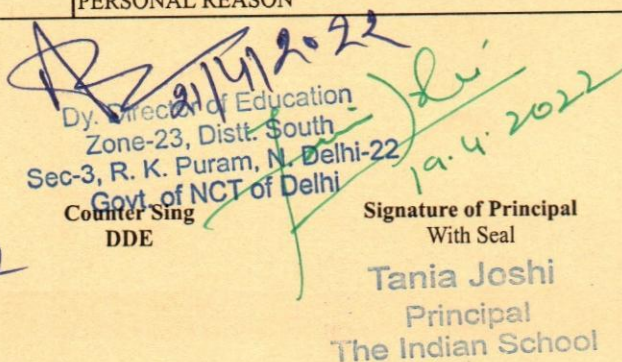 PERSONAL REASON
21/4/2022
Dy. Director of Education
Zone-23, Distt. South
Sec-3, R. K. Puram, N. Delhi-22
Govt. of NCT of Delhi
19.4.2022
Counter Sing
DDE
Signature of Principal
With Seal
Tania Joshi
Principal
The Indian School